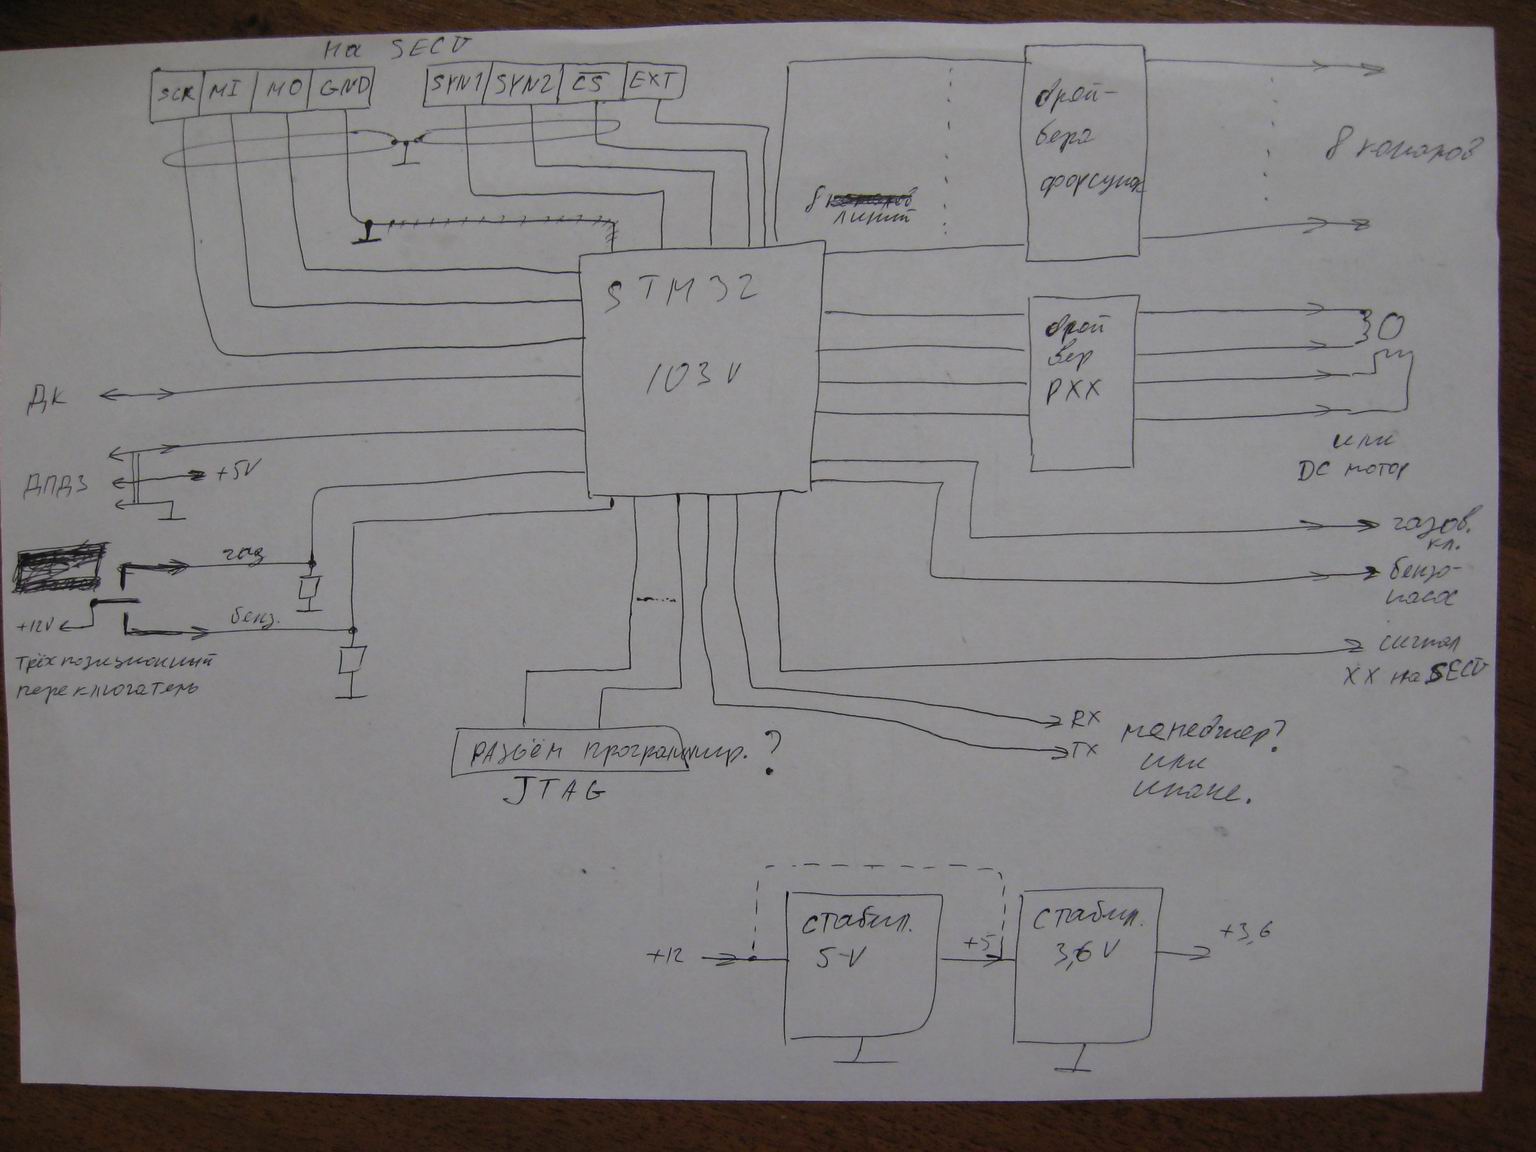 на SECU
SCK MI MO GND
SYN1 SYN2 CS EXT
8
линий
драй-
вера
форсунок
8 каналов
STM32
103V
драй
вер
РХХ
или
DC мотор
ДК
ДПДЗ
+5V
газ
+12V
бенз.
трёхпозиционный
переключатель
газов.
кл.
бензо-
насос
сигнал
ХХ на SECU
RX
TX
менеджер?
или
иначе.
РАЗЪЁМ программир. ?
JTAG
+12
стабил.
5V
+5
стабил.
3,6V
+3,6